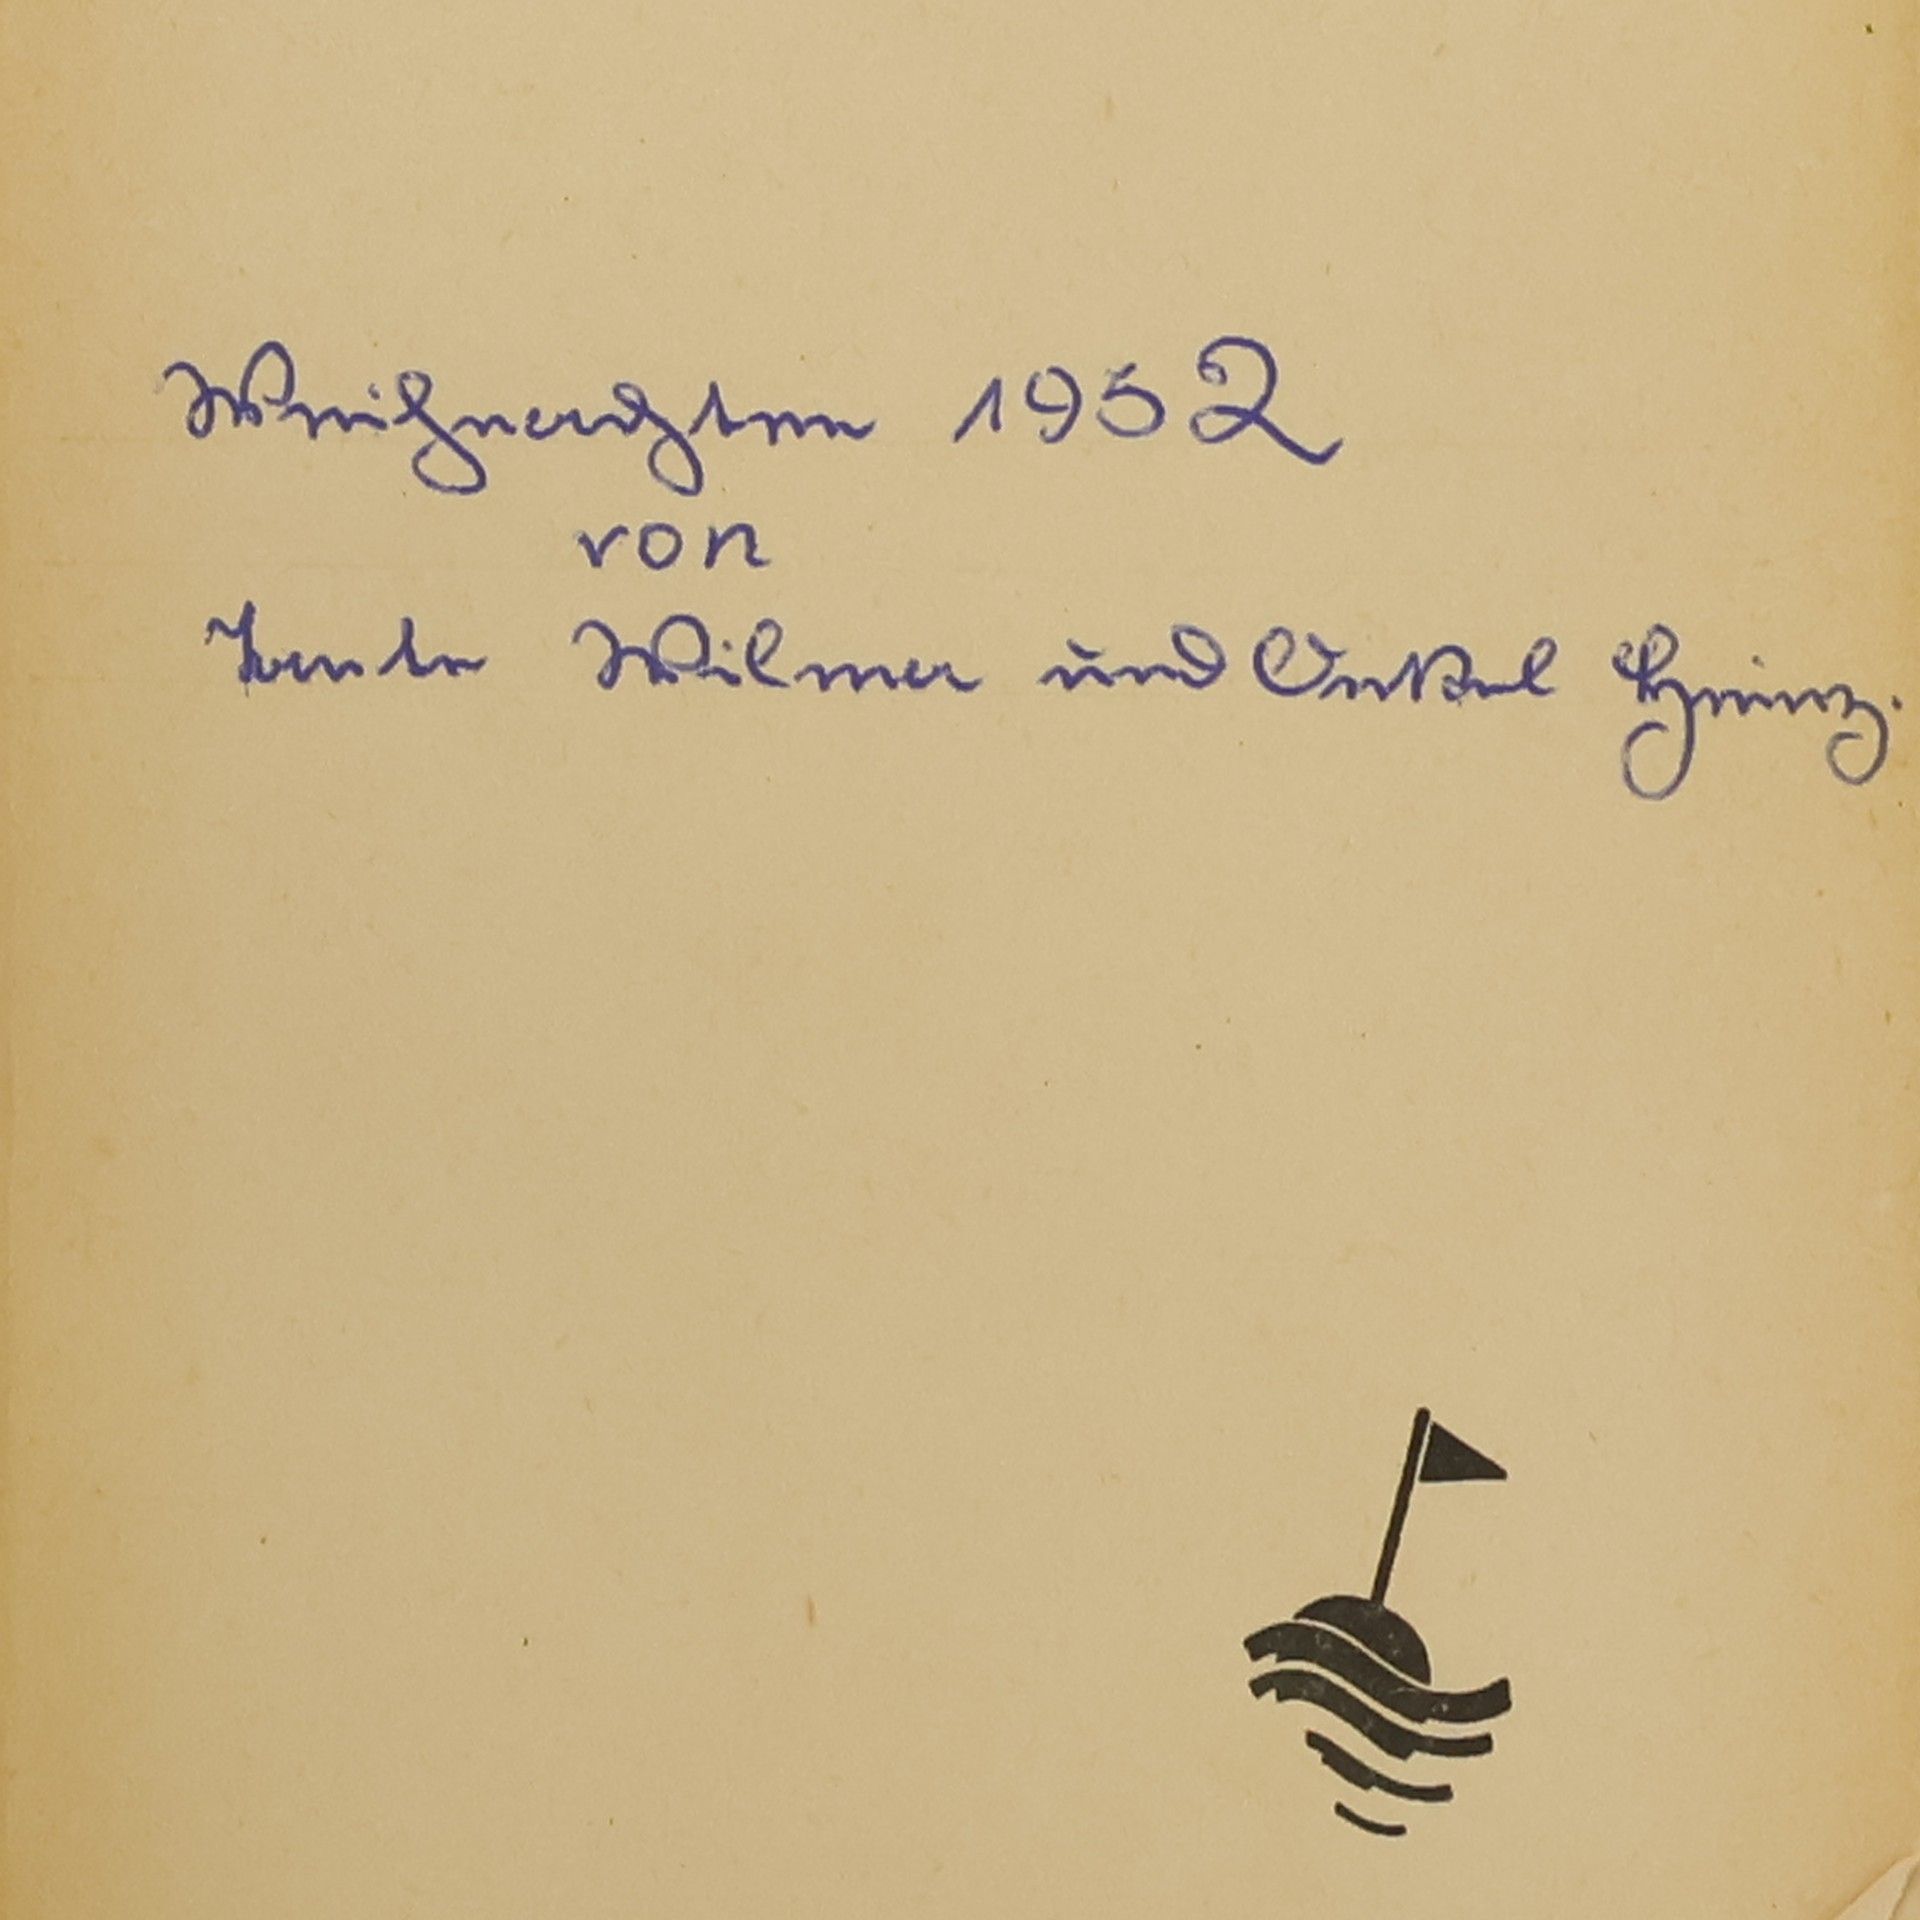 Weihnachten 1952
von
Tante Wilma und Onkel Heinz.